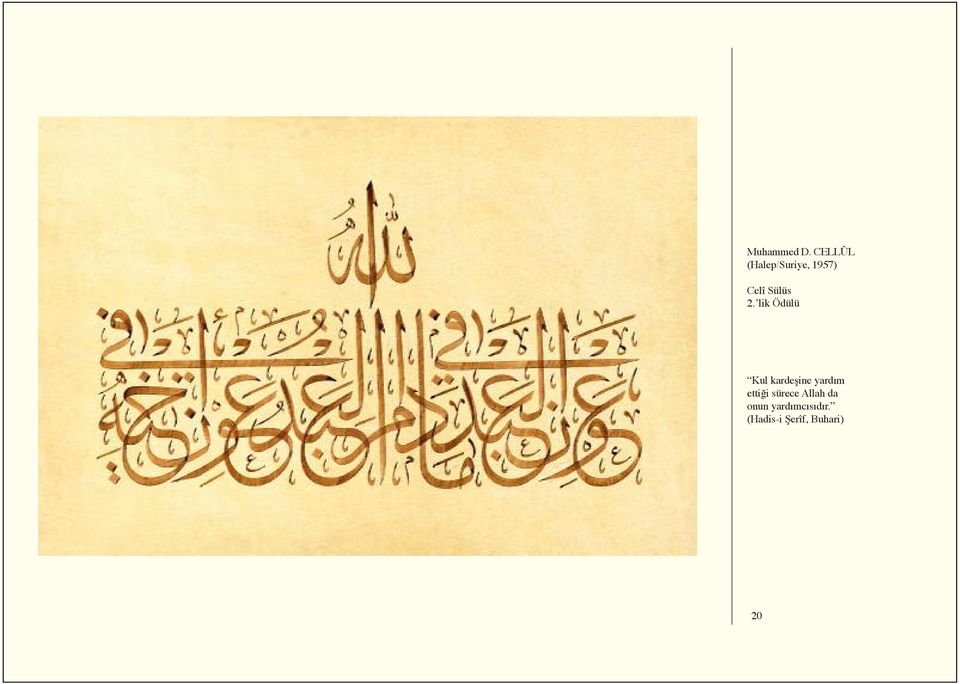 الله
في عون العبد ما دام العبد في عون أخيه
Muhammed D. CELLÛL
(Halep/Suriye, 1957)
Celî Sülüs
2.'lik Ödülü
“Kul kardeşine yardım
ettiği sürece Allah da
onun yardımcısıdır.”
(Hadis-i Şerîf, Buhari)
20